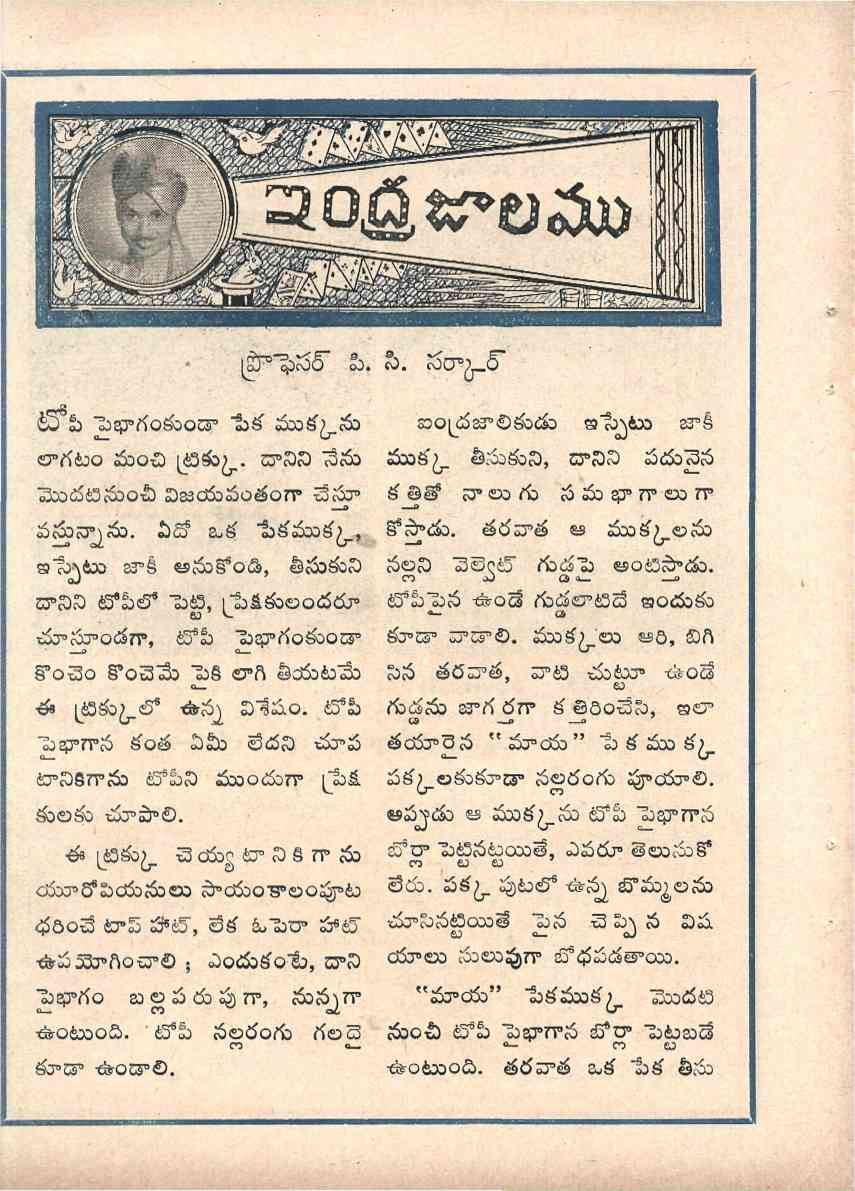 ఇంద్రజాలము
ప్రొఫెసర్ పి. సి. సర్కార్
టోపీ పైభాగంకుండా పేక ముక్కను
లాగటం మంచి ట్రిక్కు. దానిని నేను
మొదటినుంచీ విజయవంతంగా చేస్తూ
వస్తున్నాను. ఏదో ఒక పేకముక్క,
ఇస్పేటు జాకీ అనుకోండి, తీసుకుని
దానిని టోపీలో పెట్టి, ప్రేక్షకులందరూ
చూస్తూండగా, టోపీ పైభాగంకుండా
కొంచెం కొంచెమే పైకి లాగి తీయటమే
ఈ ట్రిక్కులో ఉన్న విశేషం. టోపీ
పైభాగాన కంత ఏమీ లేదని చూప
టానికిగాను టోపీని ముందుగా ప్రేక్ష
కులకు చూపాలి.
ఈ ట్రిక్కు చెయ్యటానికి గాను
యూరోపియనులు సాయంకాలంపూట
ధరించే టాప్ హాట్, లేక ఓపెరా హాట్
ఉపయోగించాలి ; ఎందుకంటే, దాని
పైభాగం బల్లపరుపుగా, నున్నగా
ఉంటుంది. టోపీ నల్లరంగు గలదై
కూడా ఉండాలి.
ఐంద్రజాలికుడు ఇస్పేటు జాకీ
ముక్క తీసుకుని, దానిని పదునైన
కత్తితో నాలుగు సమభాగాలుగా
కోస్తాడు. తరవాత ఆ ముక్కలను
నల్లని వెల్వెట్ గుడ్డపై అంటిస్తాడు.
టోపీపైన ఉండే గుడ్డలాటిదే ఇందుకు
కూడా వాడాలి. ముక్కలు ఆరి, బిగి
సిన తరవాత, వాటి చుట్టూ ఉండే
గుడ్డను జాగర్తగా కత్తిరించేసి, ఇలా
తయారైన “ మాయ” పేకముక్క
పక్కలకుకూడా నల్లరంగు పూయాలి.
అప్పుడు ఆ ముక్కను టోపీ పైభాగాన
బోర్లా పెట్టినట్టయితే, ఎవరూ తెలుసుకో
లేరు. పక్క పుటలో ఉన్న బొమ్మలను
చూసినట్టియితే పైన చెప్పిన విష
యాలు సులువుగా బోధపడతాయి.
“మాయ” పేకముక్క మొదటి
నుంచీ టోపీ పైభాగాన బోర్లా పెట్టబడే
ఉంటుంది. తరవాత ఒక పేక తీసు